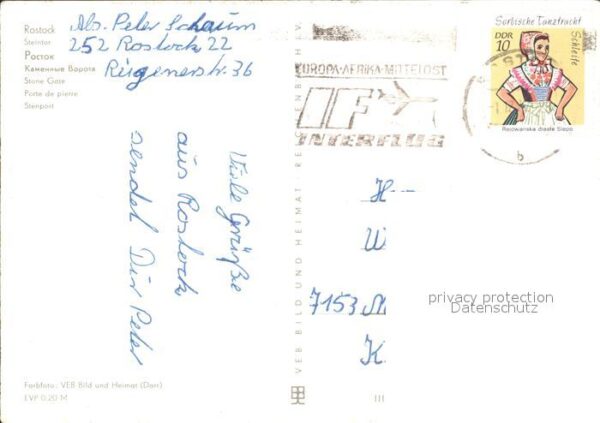 Rostock
Steintor
Росток
Каменные Ворота
Stone Gate
Porte de pierre
Stenport
Abs. Peter Schaum
252 Rostock 22
Rügenerstr. 36
Viele Grüße
aus Rostock
sendet Dir Peter
Farbfoto: VEB Bild und Heimat (Darr)
EVP 0,20 M
VEB BILD UND HEIMAT REICHENBACH I. V.
EUROPA-AFRIKA-MITTELOST
IF
INTERFLUG
Sorbische Tanztracht
DDR
10
Schleife
b
H
W
7153 M
K
privacy protection
Datenschutz
III